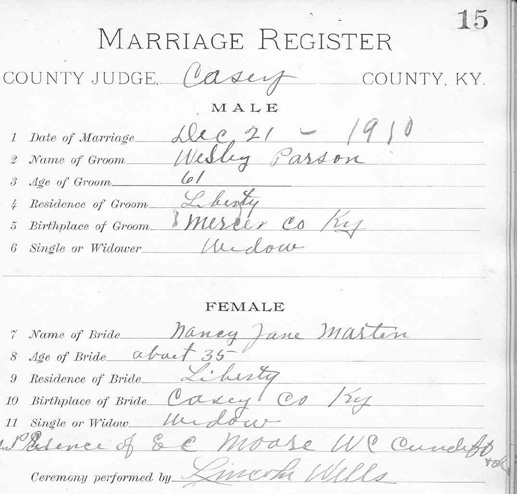 15
MARRIAGE REGISTER
COUNTY JUDGE, Casey COUNTY, KY.
MALE
1 Date of Marriage Dec 21 - 1910
2 Name of Groom Wesley Parson
3 Age of Groom 61
4 Residence of Groom Liberty
5 Birthplace of Groom Mercer Co Ky
6 Single or Widower Widow
FEMALE
7 Name of Bride Nancy Jane Martin
8 Age of Bride about 35
9 Residence of Bride Liberty
10 Birthplace of Bride Casey Co Ky
11 Single or Widow Widow
Presence of E C Moore WC Cundiff
Ceremony performed by Lincoln Wells